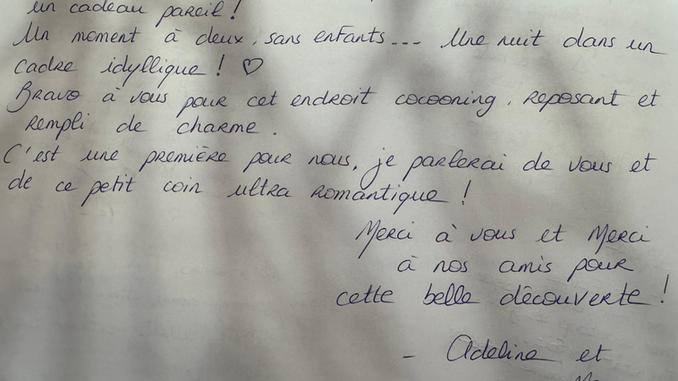 un cadeau pareil !
Un moment à deux, sans enfants... Une nuit dans un
cadre idyllique ! ♡
Bravo à vous pour cet endroit cocooning, reposant et
rempli de charme.
C'est une première pour nous, je parlerai de vous et
de ce petit coin ultra romantique !
Merci à vous et Merci
à nos amis pour
cette belle découverte !
- Adeline et